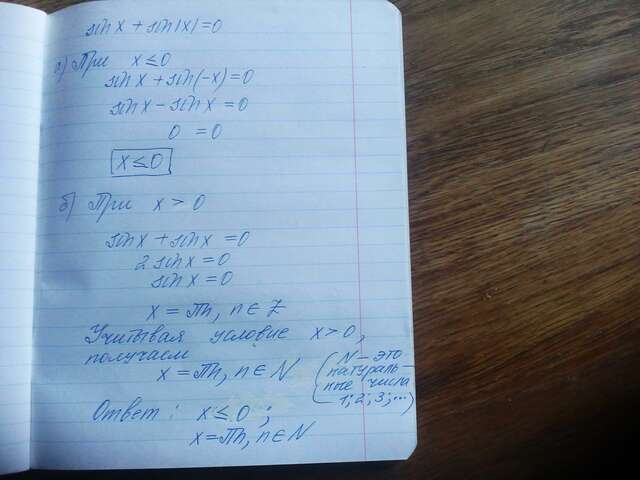 sin x + sin |x| = 0
а) При x ≤ 0
sin x + sin(-x) = 0
sin x - sin x = 0
0 = 0
x ≤ 0
б) При x > 0
sin x + sin x = 0
2 sin x = 0
sin x = 0
x = πn, n ∈ Z
Учитывая условие x > 0,
получаем
x = πn, n ∈ N
(N - это
натураль-
ные числа
1; 2; 3; ...)
Ответ: x ≤ 0 ;
x = πn, n ∈ N